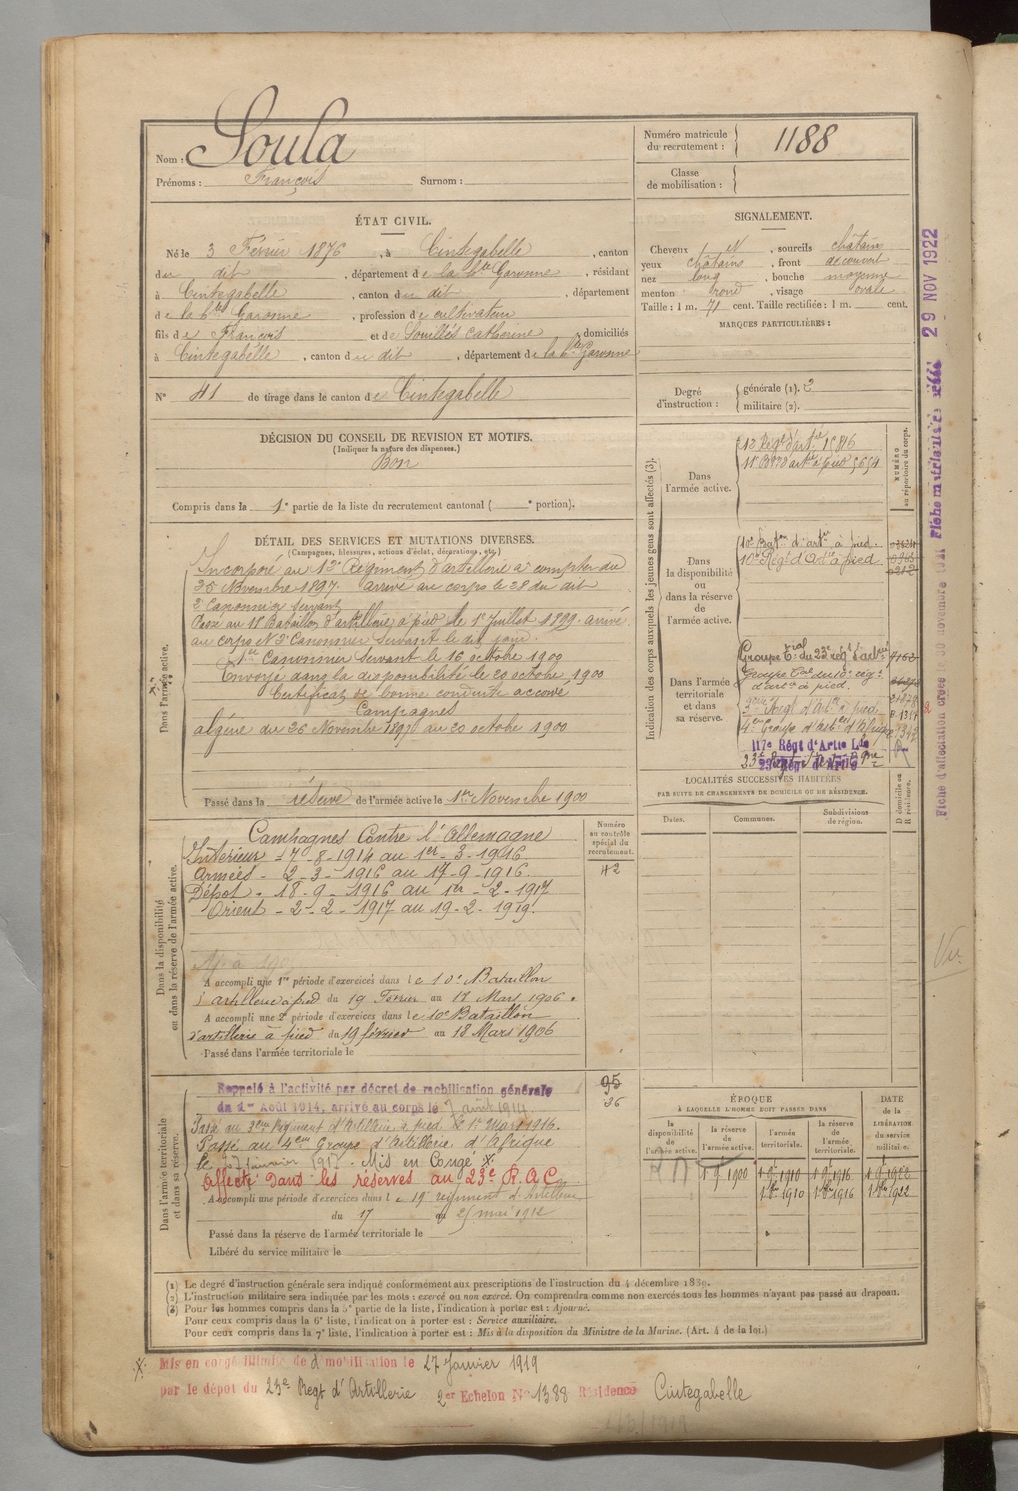 Nom : Soula
Prénoms : François Surnom :
Numéro matricule du recrutement : 1188
Classe de mobilisation :
ÉTAT CIVIL.
Né le 3 Février 1876, à Cintegabelle, canton
du dit, département de la Hte Garonne, résidant
à Cintegabelle, canton du dit, département
de la Hte Garonne, profession de cultivateur
fils de François et de Souillés Catherine, domiciliés
à Cintegabelle, canton du dit, département de la Hte Garonne
N° 41 de tirage dans le canton de Cintegabelle
SIGNALEMENT.
Cheveux N, sourcils châtain
yeux châtains, front découvert
nez long, bouche moyenne
menton rond, visage ovale
Taille : 1 m. 71 cent. Taille rectifiée : 1 m. cent.
MARQUES PARTICULIÈRES :
Degré d'instruction : générale (1). 2
militaire (2).
DÉCISION DU CONSEIL DE REVISION ET MOTIFS.
(Indiquer la nature des dispenses.)
Bon
Compris dans la 1e partie de la liste du recrutement cantonal ( e portion).
DÉTAIL DES SERVICES ET MUTATIONS DIVERSES.
(Campagnes, blessures, actions d'éclat, décorations, etc.)
Dans l'armée active.
Incorporé au 12e Régiment d'artillerie à compter du
26 Novembre 1897. arrivé au corps le 28 du dit
2e Canonnier servant
Passé au 11e Bataillon d'artillerie à pied le 1er Juillet 1899. arrivé
au corps N 2e Canonnier servant le dit jour.
1er Canonnier servant le 16 octobre 1900
Envoyé dans la disponibilité le 20 octobre 1900
Certificat de bonne conduite accordé
Campagnes
algérie du 26 Novembre 1897 au 20 octobre 1900
Passé dans la réserve de l'armée active le 1er Novembre 1900
Dans la disponibilité ou dans la réserve de l'armée active.
Campagnes Contre l'Allemagne
Intérieur - 7-8-1914 au 1er-3-1916
Armées - 2-3-1916 au 17-9-1916
Dépôt - 18-9-1916 au 1er-2-1917
Orient - 2-2-1917 au 19-2-1919.
A accompli une 1re période d'exercices dans le 10e Bataillon
d'artillerie à pied du 19 Février au 18 Mars 1906.
A accompli une 2e période d'exercices dans le 10e Bataillon
d'artillerie à pied du 19 février au 18 Mars 1906
Passé dans l'armée territoriale le
Numéro au contrôle spécial du recrutement.
42
95
26
Dans l'armée territoriale et dans sa réserve.
Rappelé à l'activité par décret de mobilisation générale
du 1er Août 1914, arrivé au corps le 7 août 1914
Passé au 3eme Régiment d'Artillerie à pied le 1er Mars 1916.
Passé au 4eme Groupe d'Artillerie d'Afrique
le 27 janvier 1917. Mis en Congé X
affecté dans les réserves au 23e R.A.C.
A accompli une période d'exercices dans le 19e régiment d'Artillerie
du 17 au 25 mai 1912
Passé dans la réserve de l'armée territoriale le
Libéré du service militaire le
Indication des corps auxquels les jeunes gens sont affectés (3).
NUMÉRO au répertoire du corps.
Dans l'armée active.
12e Régt d'artie
11e Bon d'artie à pied 5654
Dans la disponibilité ou dans la réserve de l'armée active.
10e Baton d'artie à pied.
10e Régt d'Artie à pied
Dans l'armée territoriale et dans sa réserve.
Groupe Trial du 23e régt d'artie
Groupe Tal du 10e régt
d'artie à pied.
3eme Régt d'Artie à pied
4eme Groupe d'Artie d'Afrique
117e Régt d'Artie Lde
LOCALITÉS SUCCESSIVES HABITÉES
PAR SUITE DE CHANGEMENTS DE DOMICILE OU DE RÉSIDENCE.
Dates. Communes. Subdivisions de région. D domicile ou R résidence.
ÉPOQUE
À LAQUELLE L'HOMME DOIT PASSER DANS
la disponibilité de l'armée active. la réserve de l'armée active. l'armée territoriale. la réserve de l'armée territoriale. DATE de la LIBÉRATION du service militaire.
1 9 1900 1 9 1910 1 9 1916 1 9 1922
1 8bre 1910 1 8bre 1916 1 8bre 1922
(1) Le degré d'instruction générale sera indiqué conformément aux prescriptions de l'instruction du 4 décembre 1889.
(2) L'instruction militaire sera indiquée par les mots : exercé ou non exercé. On comprendra comme non exercés tous les hommes n'ayant pas passé au drapeau.
(3) Pour les hommes compris dans la 5e partie de la liste, l'indication à porter est : Ajourné.
Pour ceux compris dans la 6e liste, l'indication à porter est : Service auxiliaire.
Pour ceux compris dans la 7e liste, l'indication à porter est : Mis à la disposition du Ministre de la Marine. (Art. 4 de la loi.)
X Mis en congé illimité de démobilisation le 27 Janvier 1919
par le dépôt du 23e Regt d'Artillerie 2er Echelon N° 1388 Résidence Cintegabelle
29 NOV 1922
Vu